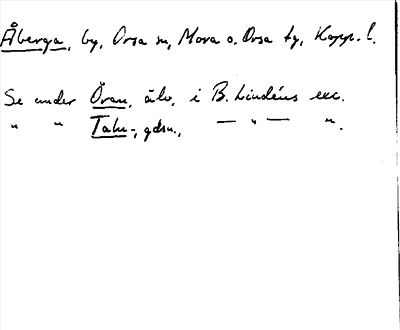 Åberga, by, Orsa sn, Mora o. Orsa tg, Kopp. l.
Se under Öran, älv, i B. Lindéns exc.
" " Talu-, gdsn., — " — ".